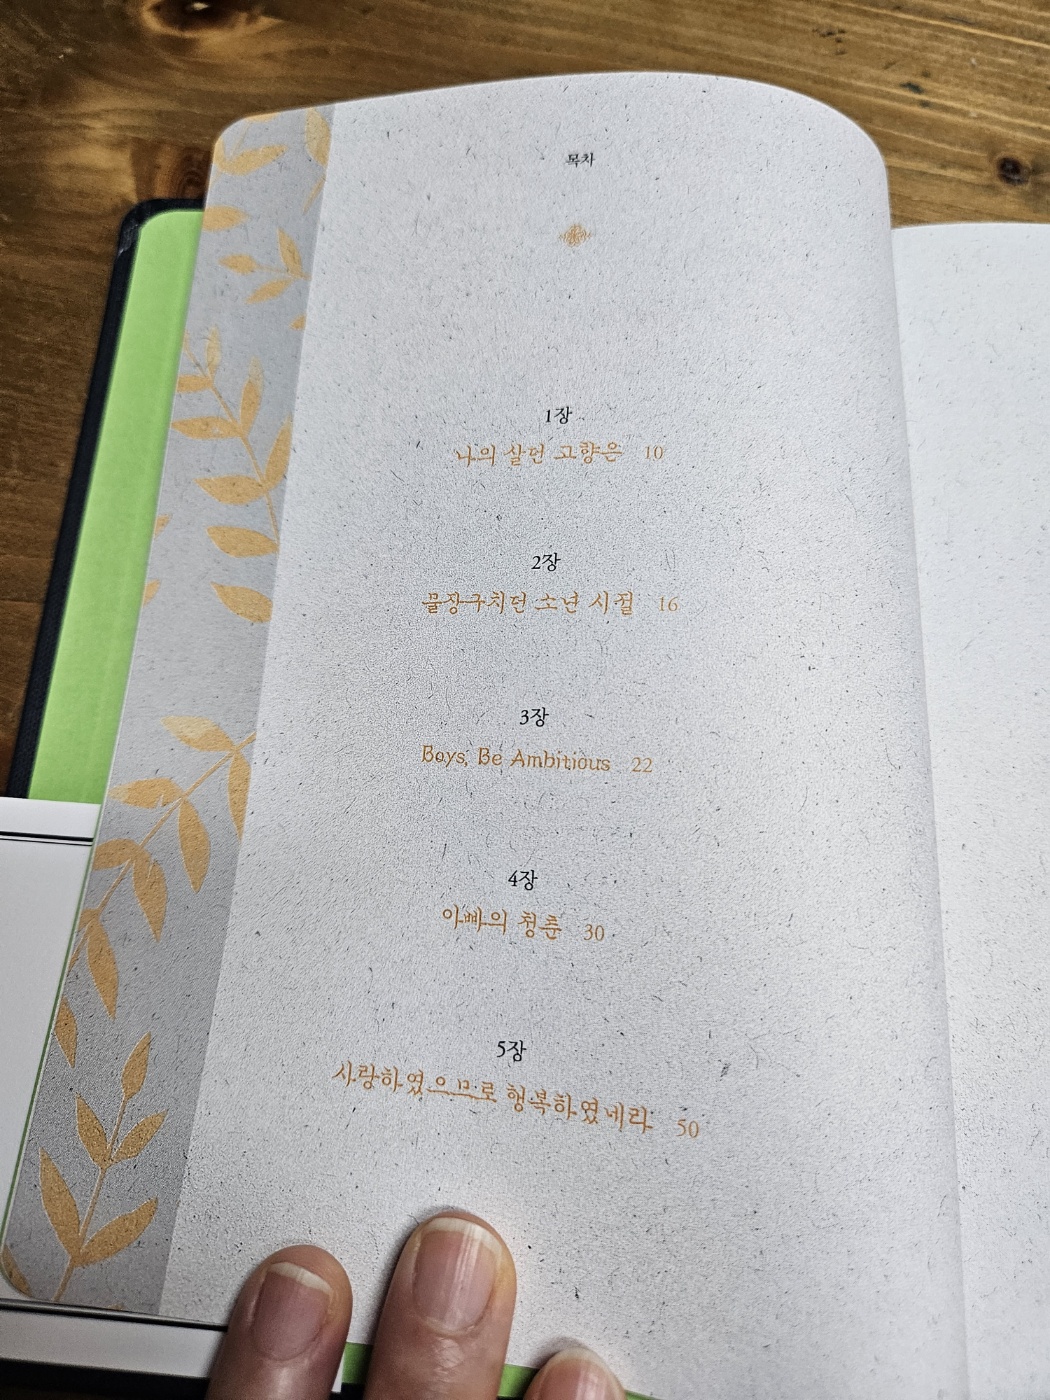 목차
1장
나의 살던 고향은 10
2장
물장구치던 소년 시절 16
3장
Boys, Be Ambitious 22
4장
아빠의 청춘 30
5장
사랑하였으므로 행복하였네라 50